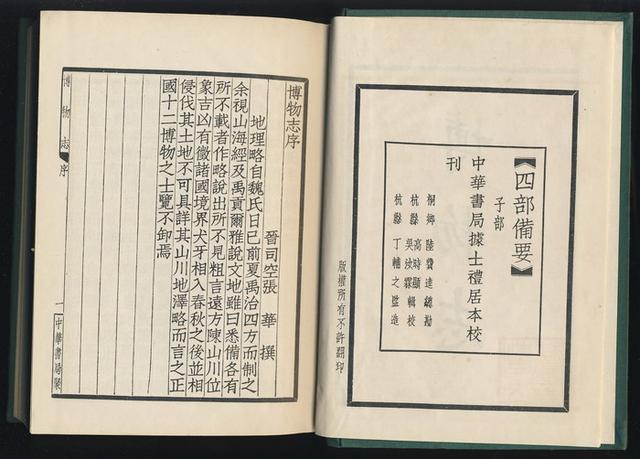 【四部備要】
子部
中華書局據士禮居本校
刊
桐鄉 陸費逵總勘
杭縣 高時顯 吳汝霖輯校
杭縣 丁輔之監造
版權所有不許翻印
博物志序
晉司空張 華 撰
地理略自魏氏日已前夏禹治四方而制之
余視山海經及禹貢爾雅說文地雖曰悉備各有
所不載者作略說出所不見粗言遠方陳山川位
象吉凶有徵諸國境界犬牙相入春秋之後並相
侵伐其土地不可具詳其山川地澤略而言之正
國十二博物之士覽不卸焉
博物志 序
一 中華書局聚